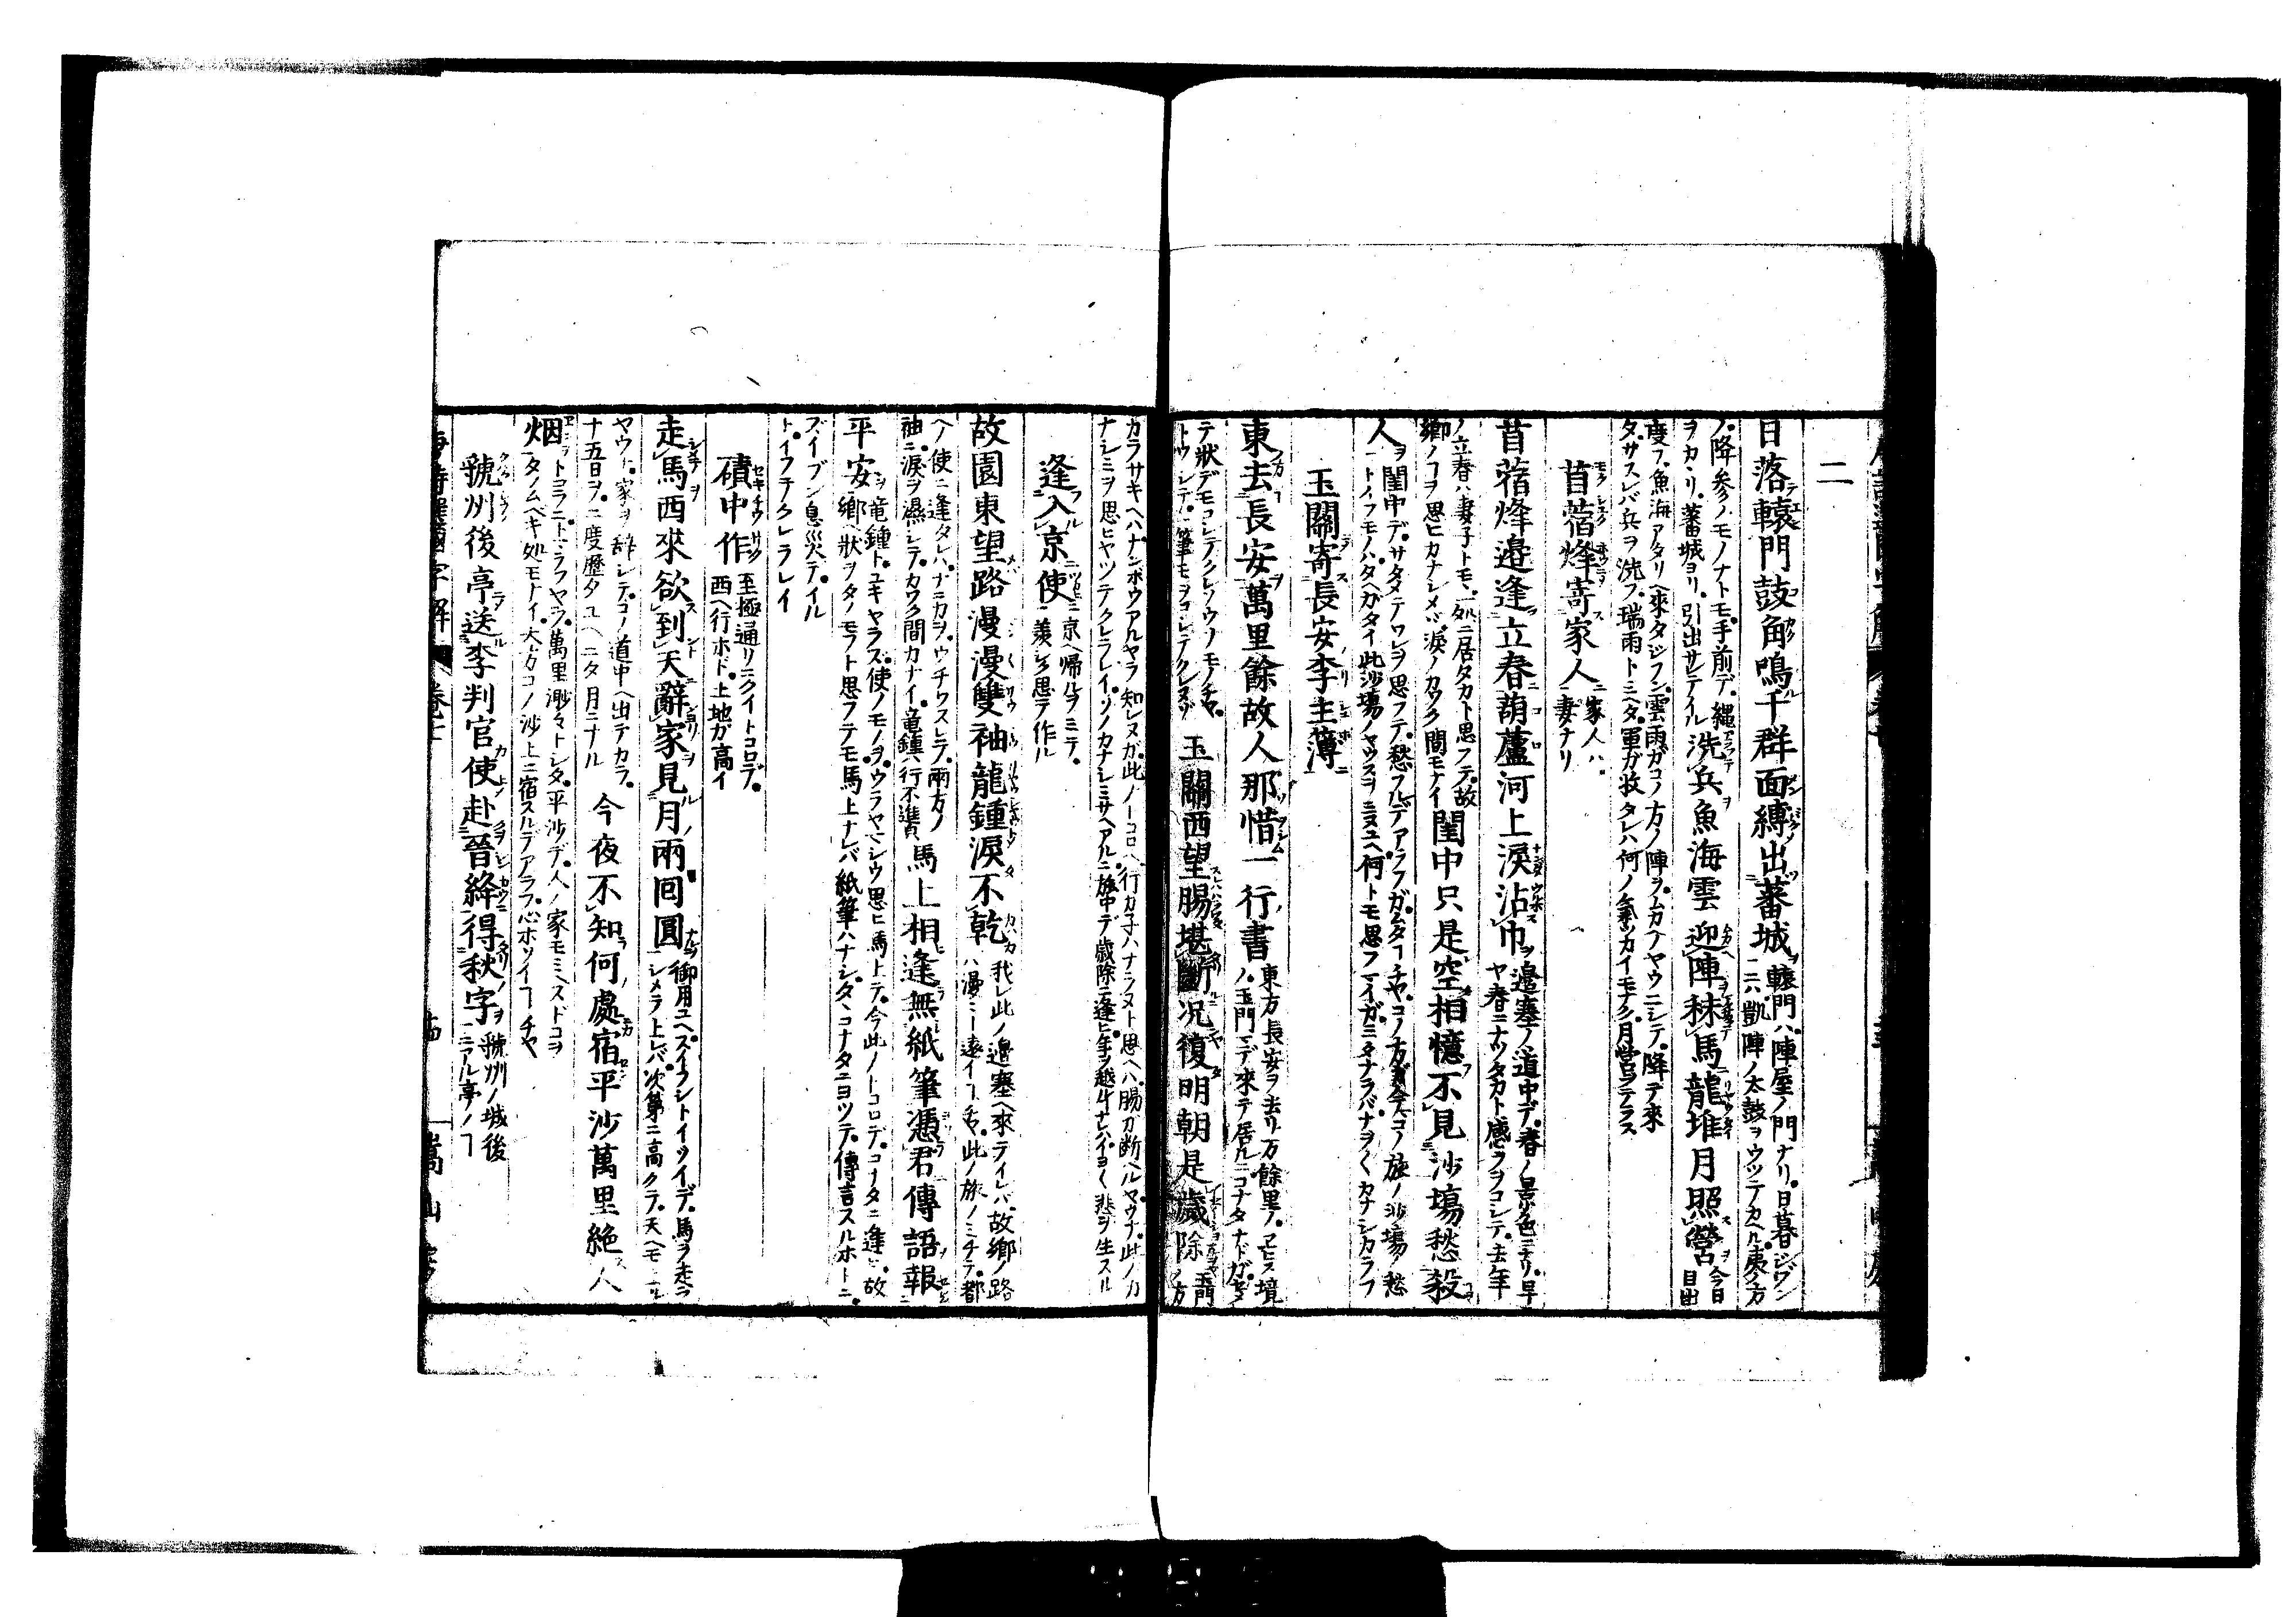 二
日落轅門鼓角鳴千群面縛出蕃城 轅門ハ陣屋ノ門ナリ日暮ジブン
ニハ凱陣ノ太鼓ヲウツテカヘル夷ノ方
ノ降参ノモノナトモ手前デ縄
ヲカヽリ蕃城ヨリ引出サレテイル 洗兵魚海雲迎陣秣馬龍堆月照營 今日
目出
度フ魚海アタリヘ來タジフン雲雨ガコノ方ノ陣ヲムカヘヤウニシテ降テ來
タサスレバ兵ヲ洗フ瑞雨トミタ軍ガ收タレハ何ノ氣ツカイモナク月營ヲテラス
苜蓿烽寄家人 家人ハ
妻ナリ
苜蓿烽邉逢立春葫蘆河上淚沾巾 邉塞ノ道中デ春ノ景色ニナリ早
ヤ春ニナツタカト感ヲヲコシテ去年
ノ立春ハ妻子トモ一処ニ居タカト思フテ故
鄉ノヿヲ思ヒカナシメバ淚ノカワク間モナイ 閨中只是空相憶不見沙場愁殺
人 閨中デサタメテワレヲ思フテ愁フルデアラフガムタヿチヤコノ方ガ今コノ旅ノ沙場ノ愁
トイフモノハタヘガタイ此沙場ノヤウスヲミヌユヘ何トモ思フマイガミタナラバナヲ〱カナシカラフ
玉關寄長安李主簿
東去長安萬里餘故人那惜一行書 東方長安ヲ去リ万餘里フヱヒス境
ノ玉門マデ來テ居ルニコナタナドガセメ
テ狀デモコシテクレソウノモノチヤ
トウシテ一筆モヲコシテクレヌゾ 玉關西望腸堪斷况復明朝是歲除 玉門
ノ方
カラサキヘハナンボウアルヤラ知レヌガ此ノトコロヘ行カ子ハナラヌト思ヘハ腸カ断ヘルヤウナ此ノカ
ナシミヲ思ヒヤツテクレラレイソノカナシミサヘアルニ旅中デ歲除ニ逢ヒ年ヲ越ルナレハイヨ〱悲ヲ生スル
逢入京使 京ヘ帰ルヲミテ
羨シク思テ作ル
故園東望路漫漫雙袖龍鍾淚不乾 我レ此ノ邉塞ヘ來テイレバ故鄉ノ路
ハ漫〻ト遠イヿチヤ此ノ旅ノミチテ都
ヘノ使ニ逢タレハナニカヲウチワスレテ兩方ノ
袖ニ淚ヲ濕シテカワク間カナイ竜鍾ハ行不進皃 馬上相逢無紙筆憑君傳語報
平安 竜鍾トユキヤラス使ノモノヲウラヤマシウ思ヒ馬上テ今此ノトコロデコナタニ逢ヒ故
鄉ヘ狀ヲタノモラト思フテモ馬上ナレバ紙筆ハナシダヽコナタニヨツテ傳言スルホトニ
ズイブン息災テイル
トイフテクレラレイ
磧中作 至極通リニクイトコロデ
西ヘ行ホド上地ガ高イ
走馬西來欲到天辭家見月兩回圓 御用ユヘズイフントイソイデ馬ヲ走ラ
シメラ上レバ次第ニ高クテ天ヘモ
ヤウナ家ヲ辞シテコノ道中ヘ出テカラ
十五日ヲ二度歷タユヘニタ月ニナル 今夜不知何處宿平沙萬里絶人
烟 トコラニトマラフヤラ萬里渺々トシタ平沙デ人ノ家モミヘスドコヲ
タノムベキ処モナイ大方コノ沙上ニ宿スルデアラフ心ホソイヿチヤ
虢州後亭送李判官使赴晉絳得秋字 虢州ノ城後
ニアル亭ノヿ
唐詩選國字解 卷七
嵩山房